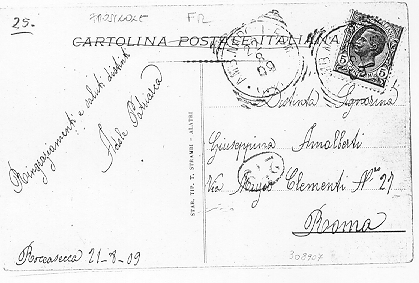 25.
FR
CARTOLINA POSTALE ITALIANA
5 5
Ringraziamenti e saluti distinti
Adele Patriarca
STAB. TIP. T. STRAMBI - ALATRI
Distinta Signorina
Giuseppina Amalberti
Via Muzio Clementi No 27
Roma
Roccasecca 21-8-09
308907